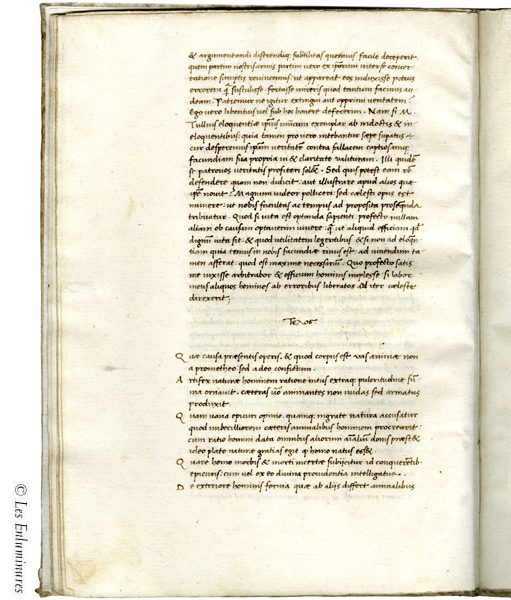 & argumentandi disserendiq; subtilitas quemuis facile deceperit
quem partim nostris armis partim uero ex ipsorum inter se concer-
tatione sumptis reuincemus: ut appareat eos induxisse potius
errorem q̃ sustulisse. fortasse mireris quod tantum facinus au
deam. Patiemur ne igitur extingui aut opprimi ueritatem:
Ego uero libentius uel sub hoc honere defecerim. Nam si M.
Tullius eloquentiæ ipsius unicum exemplar ab indoctis & in
eloquentibus: quia tamen pro uero nitebantur sæpe supatus ē
cur desperemus ipsam ueritatē contra fallacem captiosamq;
facundiam sua propria ui & claritate ualituram. Illi quidē
se patronos ueritatis profiteri solēt. Sed quis potest eam rē
defendere quam non didicit. aut illustrare apud alios quæ
ipse nō nouit? Magnum uideor polliceri sed cælesti opus est
munere: ut nobis facultas ac tempus ad proposita
tribuatur. Quod si uita est optanda sapienti. profecto nullam
aliam ob causam optauerim uiuere: q̃ ut aliquid efficiam qđ
dignum uita sit: & quod utilitatem legentibus & si non ad eloq̃n
tiam quia tenuis in nobis facundiæ riuus est. ad uiuendum ta-
men afferat. quod est maxime necessariū. Quo profecto satis
me uixisse arbitrabor & officium hominis implesse: si labor
meus aliquos homines ab erroribus liberatos ad iter cæleste
direxerit;
Τέλος.
Quæ causa præsentis operis. & quod corpus est uas animæ non
a prometheo sed a deo confictum.
Artifex naturæ hominem ratione intus extraq; pulcritudine sū
ma ornauit. cæteras uō animantes non nudas sed armatas
produxit.
Quam uana epicuri opinio. quamq; migrate natura accusatur
quod imbecilliorem cæteris animalibus hominem procrearit:
cum ratio homini data omnibus aliorum aīalium donis præstet &
ideo plato naturæ gratias egit q homo natus esset.
Quare homo morbis & morti incertæ subijcitur id conquerētib.
epicuris: cum uel ex eo diuina prouidentia intelligatur.
De exteriore hominis forma quæ ab alijs differt animalibus
© Les Enluminures